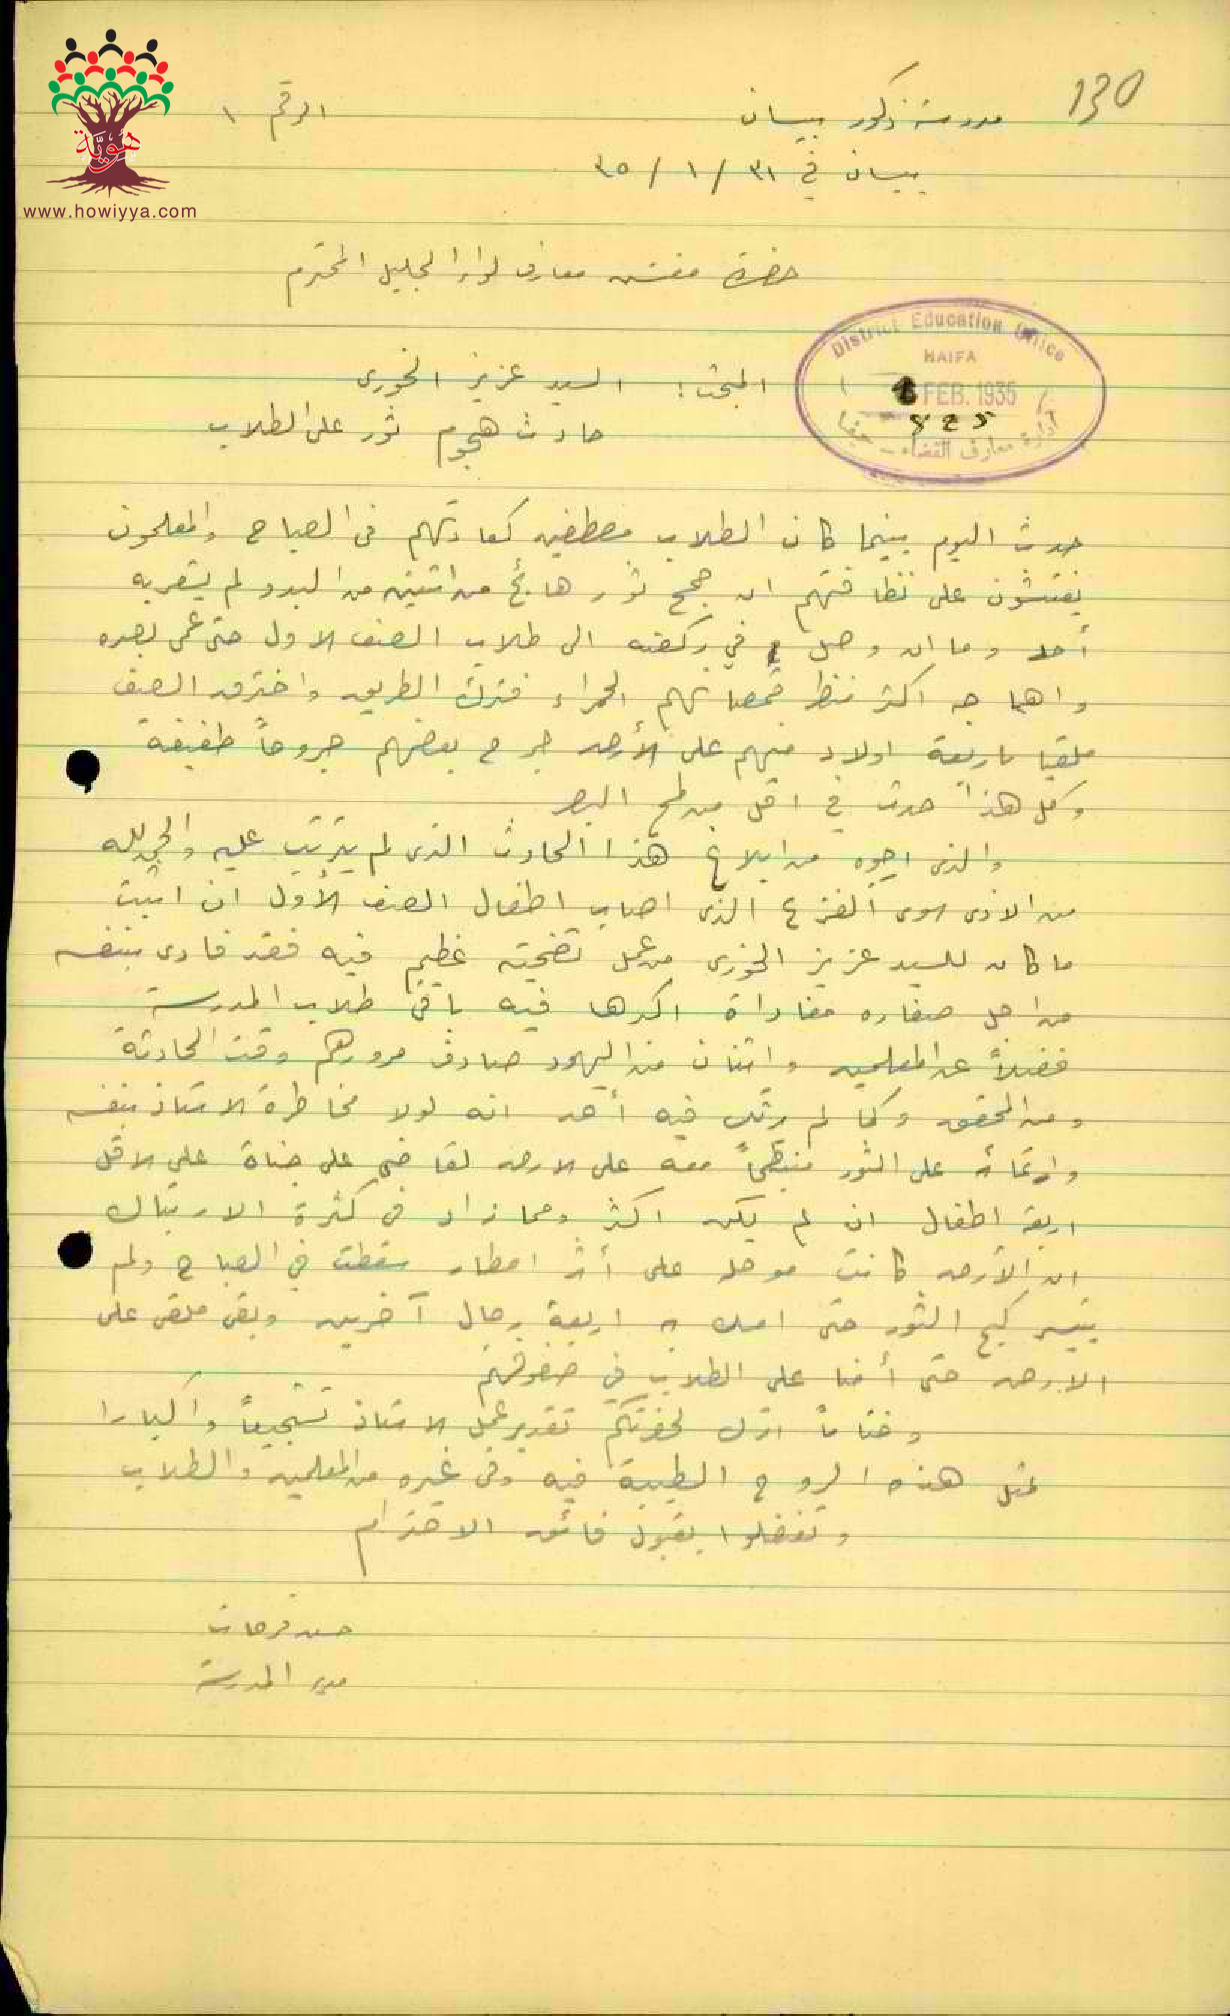 130
مدرسة ذكور بيسان
الرقم ١
بيسان في ٣١ / ١ / ٣٥
هوية
www.howiyya.com
حضرة مفتش معارف لواء الجليل المحترم
District Education Office
HAIFA
FEB. 1935
825
ادارة معارف القضاء - حيفا
المبحث: السيد عزيز الخوري
حادث هجوم ثور على الطلاب
حدث اليوم بينما كان الطلاب مصطفين كعادتهم في الصباح والمعلمون
يفتشون على نظافتهم ان جمح ثور هائج من اثنين من البدو لم يشعر به
أحد وما ان وصل في ركضه الى طلاب الصف الاول حتى عمي بصره
واهاجه اكثر منظر قمصانهم الحمراء فترك الطريق واخترق الصف
ملقيا باربعة اولاد منهم على الأرض جرح بعضهم جروحاً طفيفة
وكل هذا حدث في اقل من لمح البصر
والذي ارجوه من ابلاغ هذا الحادث الذي لم يترتب عليه والحمد لله
من الاذى سوى الفزع الذي اصاب اطفال الصف الأول ان اثبت
ما كان للسيد عزيز الخوري من عمل تضحية عظيم فيه فقد فادى بنفسه
من اجل صغاره مفاداة اكبرها فيه باقي طلاب المدرسة
فضلاً عن المعلمين واثنان من اليهود صادف مرورهم وقت الحادثة
ومن المحقق وكما لم يشك فيه أحد انه لولا مخاطرة الاستاذ بنفسه
وارتمائه على الثور منبطحاً معه على الارض لقا ضي على حياة على الاقل
اربعة اطفال ان لم يكن اكثر ومما زاد في كثرة الارتباك
ان الأرض كانت موحلة على أثر امطار سقطت في الصباح ولم
يتيسر كبح الثور حتى امسك به اربعة رجال آخرين وبقي ملقى على
الارض حتى أمنا على الطلاب في صفوفهم
وختاماً اترك لحضرتكم تقدير عمل الاستاذ تشجيعاً واكبارا
لمثل هذه الروح الطيبة فيه وفي غيره من المعلمين والطلاب
وتفضلوا بقبول فائق الاحترام
حسن فرحات
مدير المدرسة